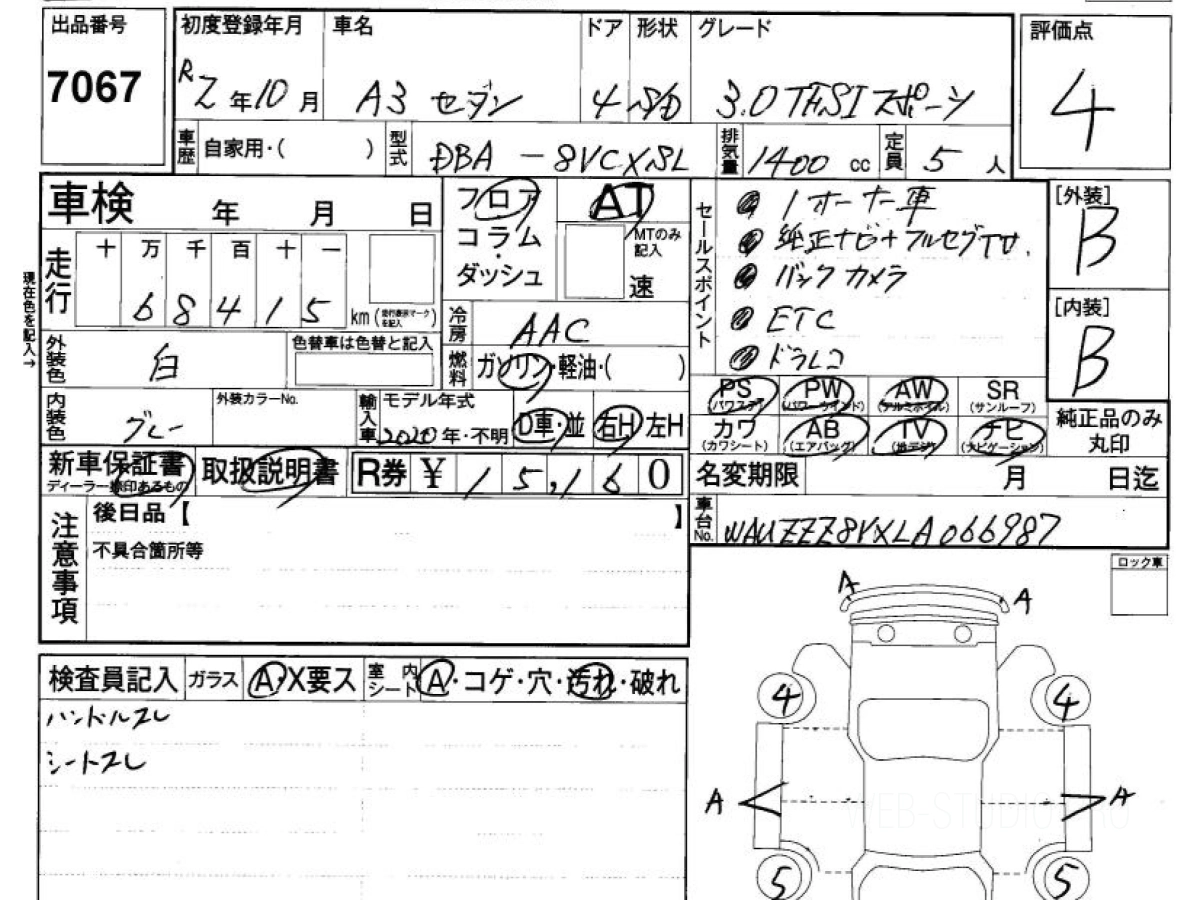 出品番号
7067
初度登録年月 車名 ドア 形状 グレード
R2年10月 A3 セダン 4 S/D 3.0 TFSI スポーツ
評価点
4
車歴 自家用・( ) 型式 DBA-8VCXSL 排気量 1400 cc 定員 5 人
車検 年 月 日
走行 十 万 千 百 十 一
68415 km (走行表示マークを記入)
現在色を記入→
フロア AT
コラム・ MTのみ記入
ダッシュ 速
冷房 AAC
燃料 ガソリン・軽油・( )
外装色 白 色替車は色替と記入
内装色 グレー 外装カラーNo.
輸入車 モデル年式 2020年・不明 D車・並 右H 左H
セールスポイント
1オーナー車
純正ナビ+フルセグTV.
バックカメラ
ETC
ドラレコ
[外装]
B
[内装]
B
PS PW AW SR
(パワステ) (パワーウインド) (アルミホイル) (サンルーフ)
カワ AB TV ナビ
(カワシート) (エアバッグ) (地デジ) (ナビゲーション)
純正品のみ
丸印
新車保証書 取扱説明書 R券 ¥ 15,160
ディーラー捺印あるもの
名変期限 月 日迄
車台No. WAUZZZ8VXLA066987
注意事項
後日品【 】
不具合箇所等
ロック車
検査員記入 ガラス A・X要ス 室内シート A・コゲ・穴・汚れ・破れ
ハンドルスレ
シートスレ
A A
4 4
A A
5 5
WEB-STUDIO.PRO